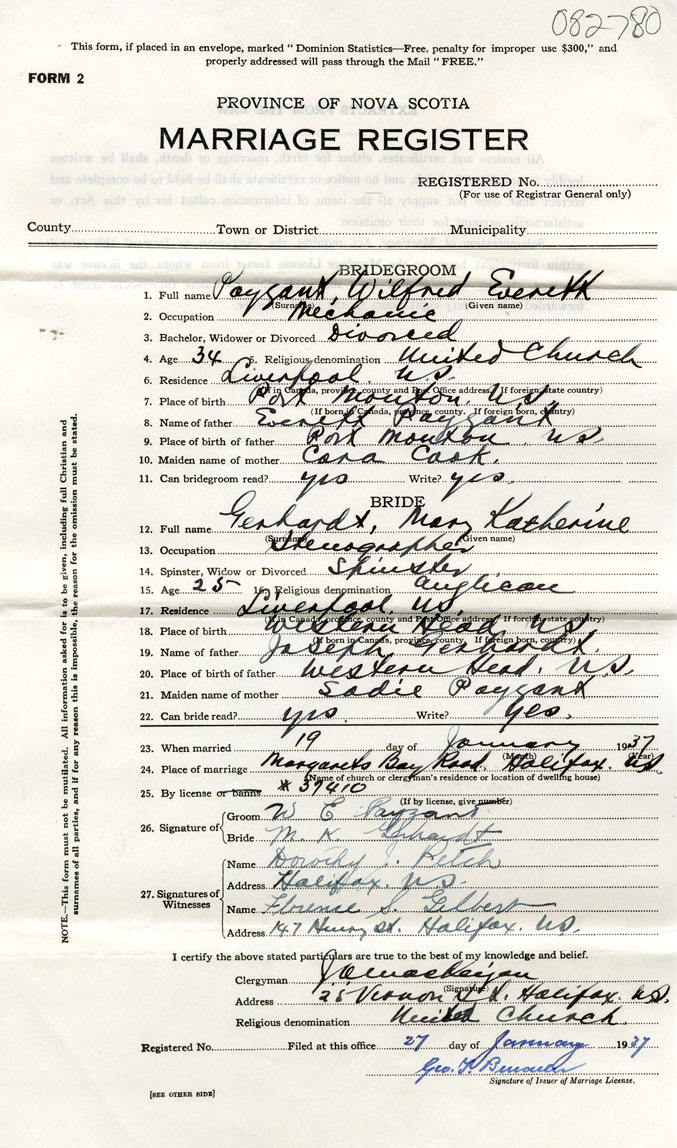 082780
This form, if placed in an envelope, marked "Dominion Statistics—Free, penalty for improper use $300," and
properly addressed will pass through the Mail "FREE."
FORM 2
PROVINCE OF NOVA SCOTIA
MARRIAGE REGISTER
REGISTERED No.
(For use of Registrar General only)
County Town or District Municipality
BRIDEGROOM
1. Full name Payzant, Wilfred Everett
(Surname) (Given name)
2. Occupation Mechanic
3. Bachelor, Widower or Divorced Divorced
4. Age 34 5. Religious denomination United Church
6. Residence Liverpool. N.S.
(If in Canada, province, county and Post Office address. If foreign state country)
7. Place of birth Port Mouton. N.S.
(If born in Canada, province, county. If foreign born, country)
8. Name of father Everett Payzant
9. Place of birth of father Port Mouton N.S.
10. Maiden name of mother Cora Cook.
11. Can bridegroom read? yes Write? yes.
BRIDE
12. Full name Gerhardt, Mary Katherine
(Surname) (Given name)
13. Occupation Stenographer
14. Spinster, Widow or Divorced Spinster
15. Age 25 16. Religious denomination Anglican
17. Residence Liverpool. N.S.
(If in Canada, province, county and Post Office address. If foreign state country)
18. Place of birth Western Head. N.S.
(If born in Canada, province, county. If foreign born, country)
19. Name of father Joseph Gerhardt.
20. Place of birth of father Western Head. N.S.
21. Maiden name of mother Sadie Payzant
22. Can bride read? yes. Write? yes.
23. When married 19 day of January 1937
(Month) (Year)
24. Place of marriage Margarets Bay Road. Halifax. N.S.
(Name of church or clergyman's residence or location of dwelling house)
25. By license or banns # 37410
(If by license, give number)
26. Signature of
Groom W E Payzant
Bride M. K. Gerhardt
27. Signatures of Witnesses
Name Dorothy J. Petch
Address Halifax. N.S.
Name Florence S. Gilbert
Address 147 Henry St. Halifax. N.S.
I certify the above stated particulars are true to the best of my knowledge and belief.
Clergyman
(Signature)
Address 25 Vernon St. Halifax. N.S.
Religious denomination United Church.
Registered No. Filed at this office 27 day of January 1937
Geo.
Signature of Issuer of Marriage License.
[SEE OTHER SIDE]
NOTE.—This form must not be mutilated. All information asked for is to be given, including full Christian and
surnames of all parties, and if for any reason this is impossible, the reason for the omission must be stated.